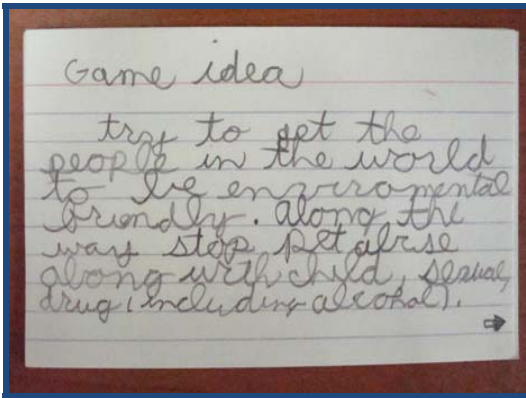 Game idea
try to get the
people in the world
to be enviromental
friendly. Along the
way stop pet abuse
along with child, sexual,
drug (including alcohol).